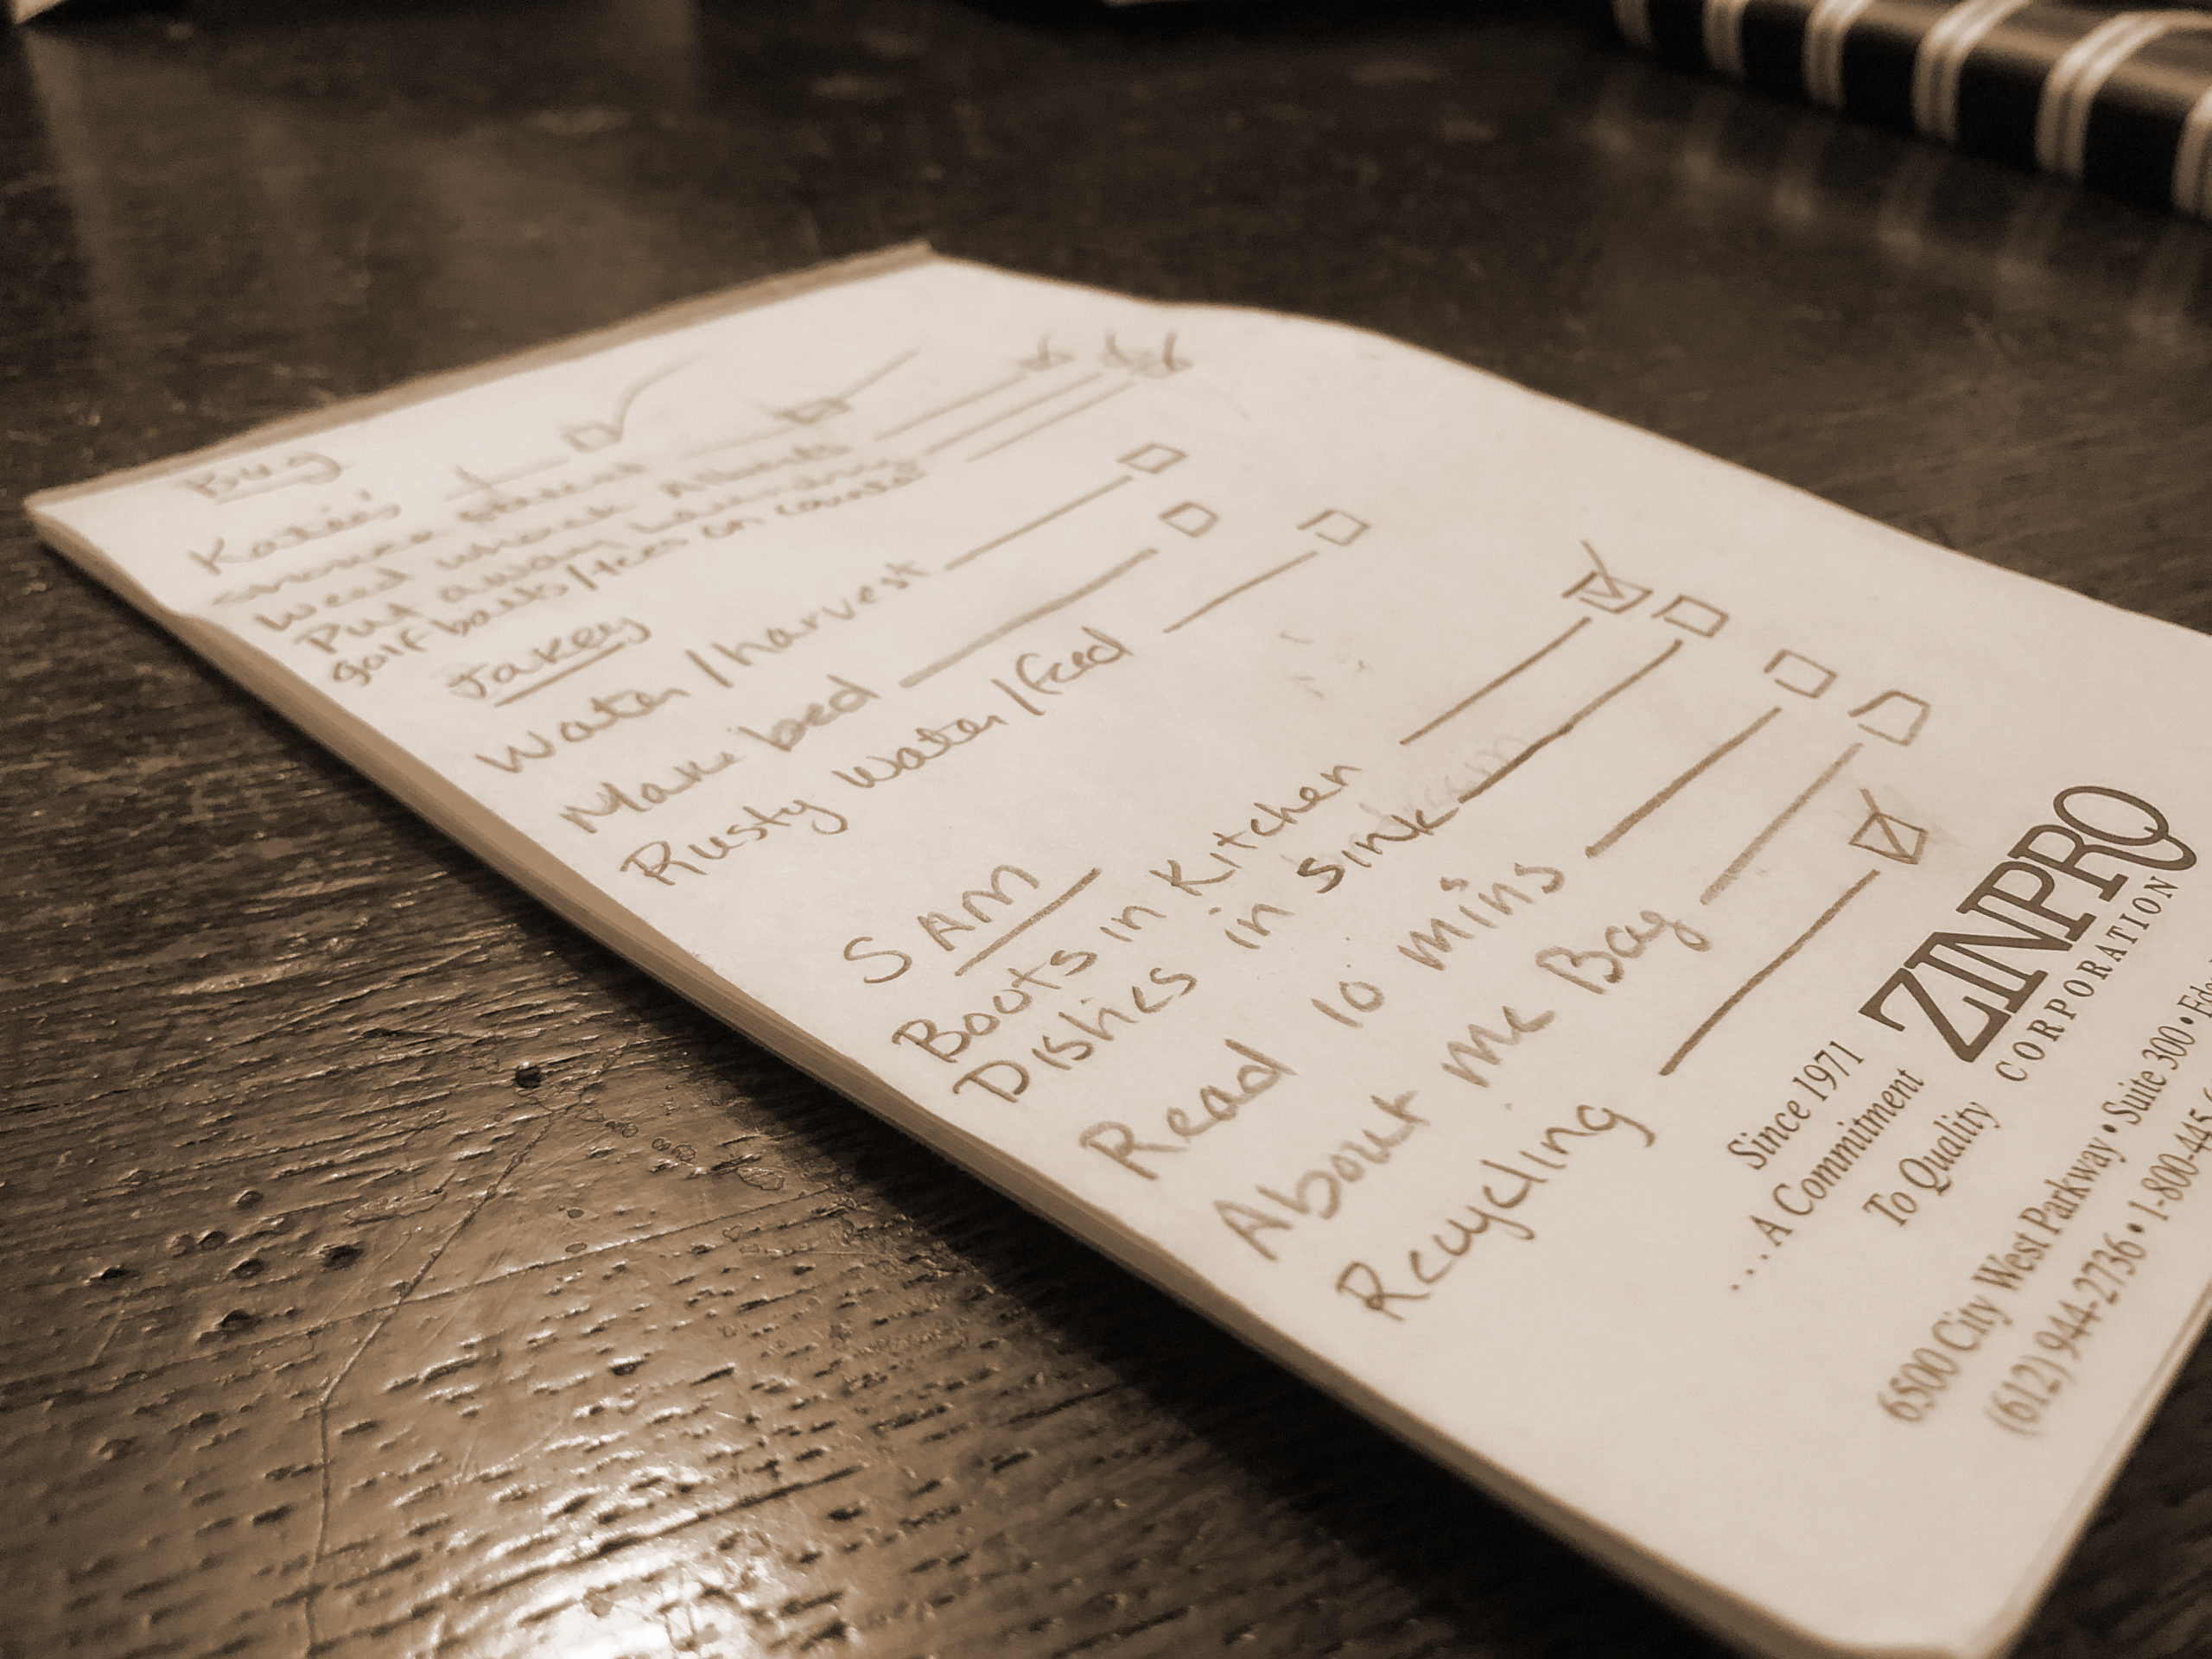 Bug
Katie's
weed whack
Put away laundry
golf balls/tees on counter
Jakey
Water/harvest
Make bed
Rusty water/feed
SAM
Boots in Kitchen
Dishes in sink
Read 10 mins
About me Bag
Recycling
ZINPRO
CORPORATION
Since 1971
...A Commitment
To Quality
6500 City West Parkway • Suite 300 •
(612) 944-2736 • 1-800-445